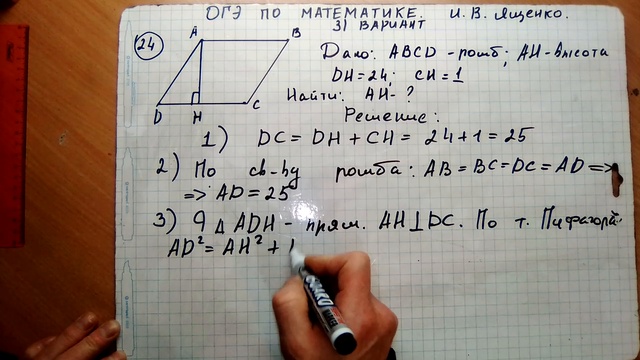 ОГЭ ПО МАТЕМАТИКЕ. И.В. Ященко.
31 ВАРИАНТ
24
A B
D H C
Дано: ABCD - ромб; AH - высота
DH = 24; CH = 1
Найти: AH - ?
Решение:
1) DC = DH + CH = 24 + 1 = 25
2) По св-ву ромба: AB = BC = DC = AD =>
=> AD = 25
3) Δ ADH - прям. AH ⊥ DC. По т. Пифагора
AD² = AH² +